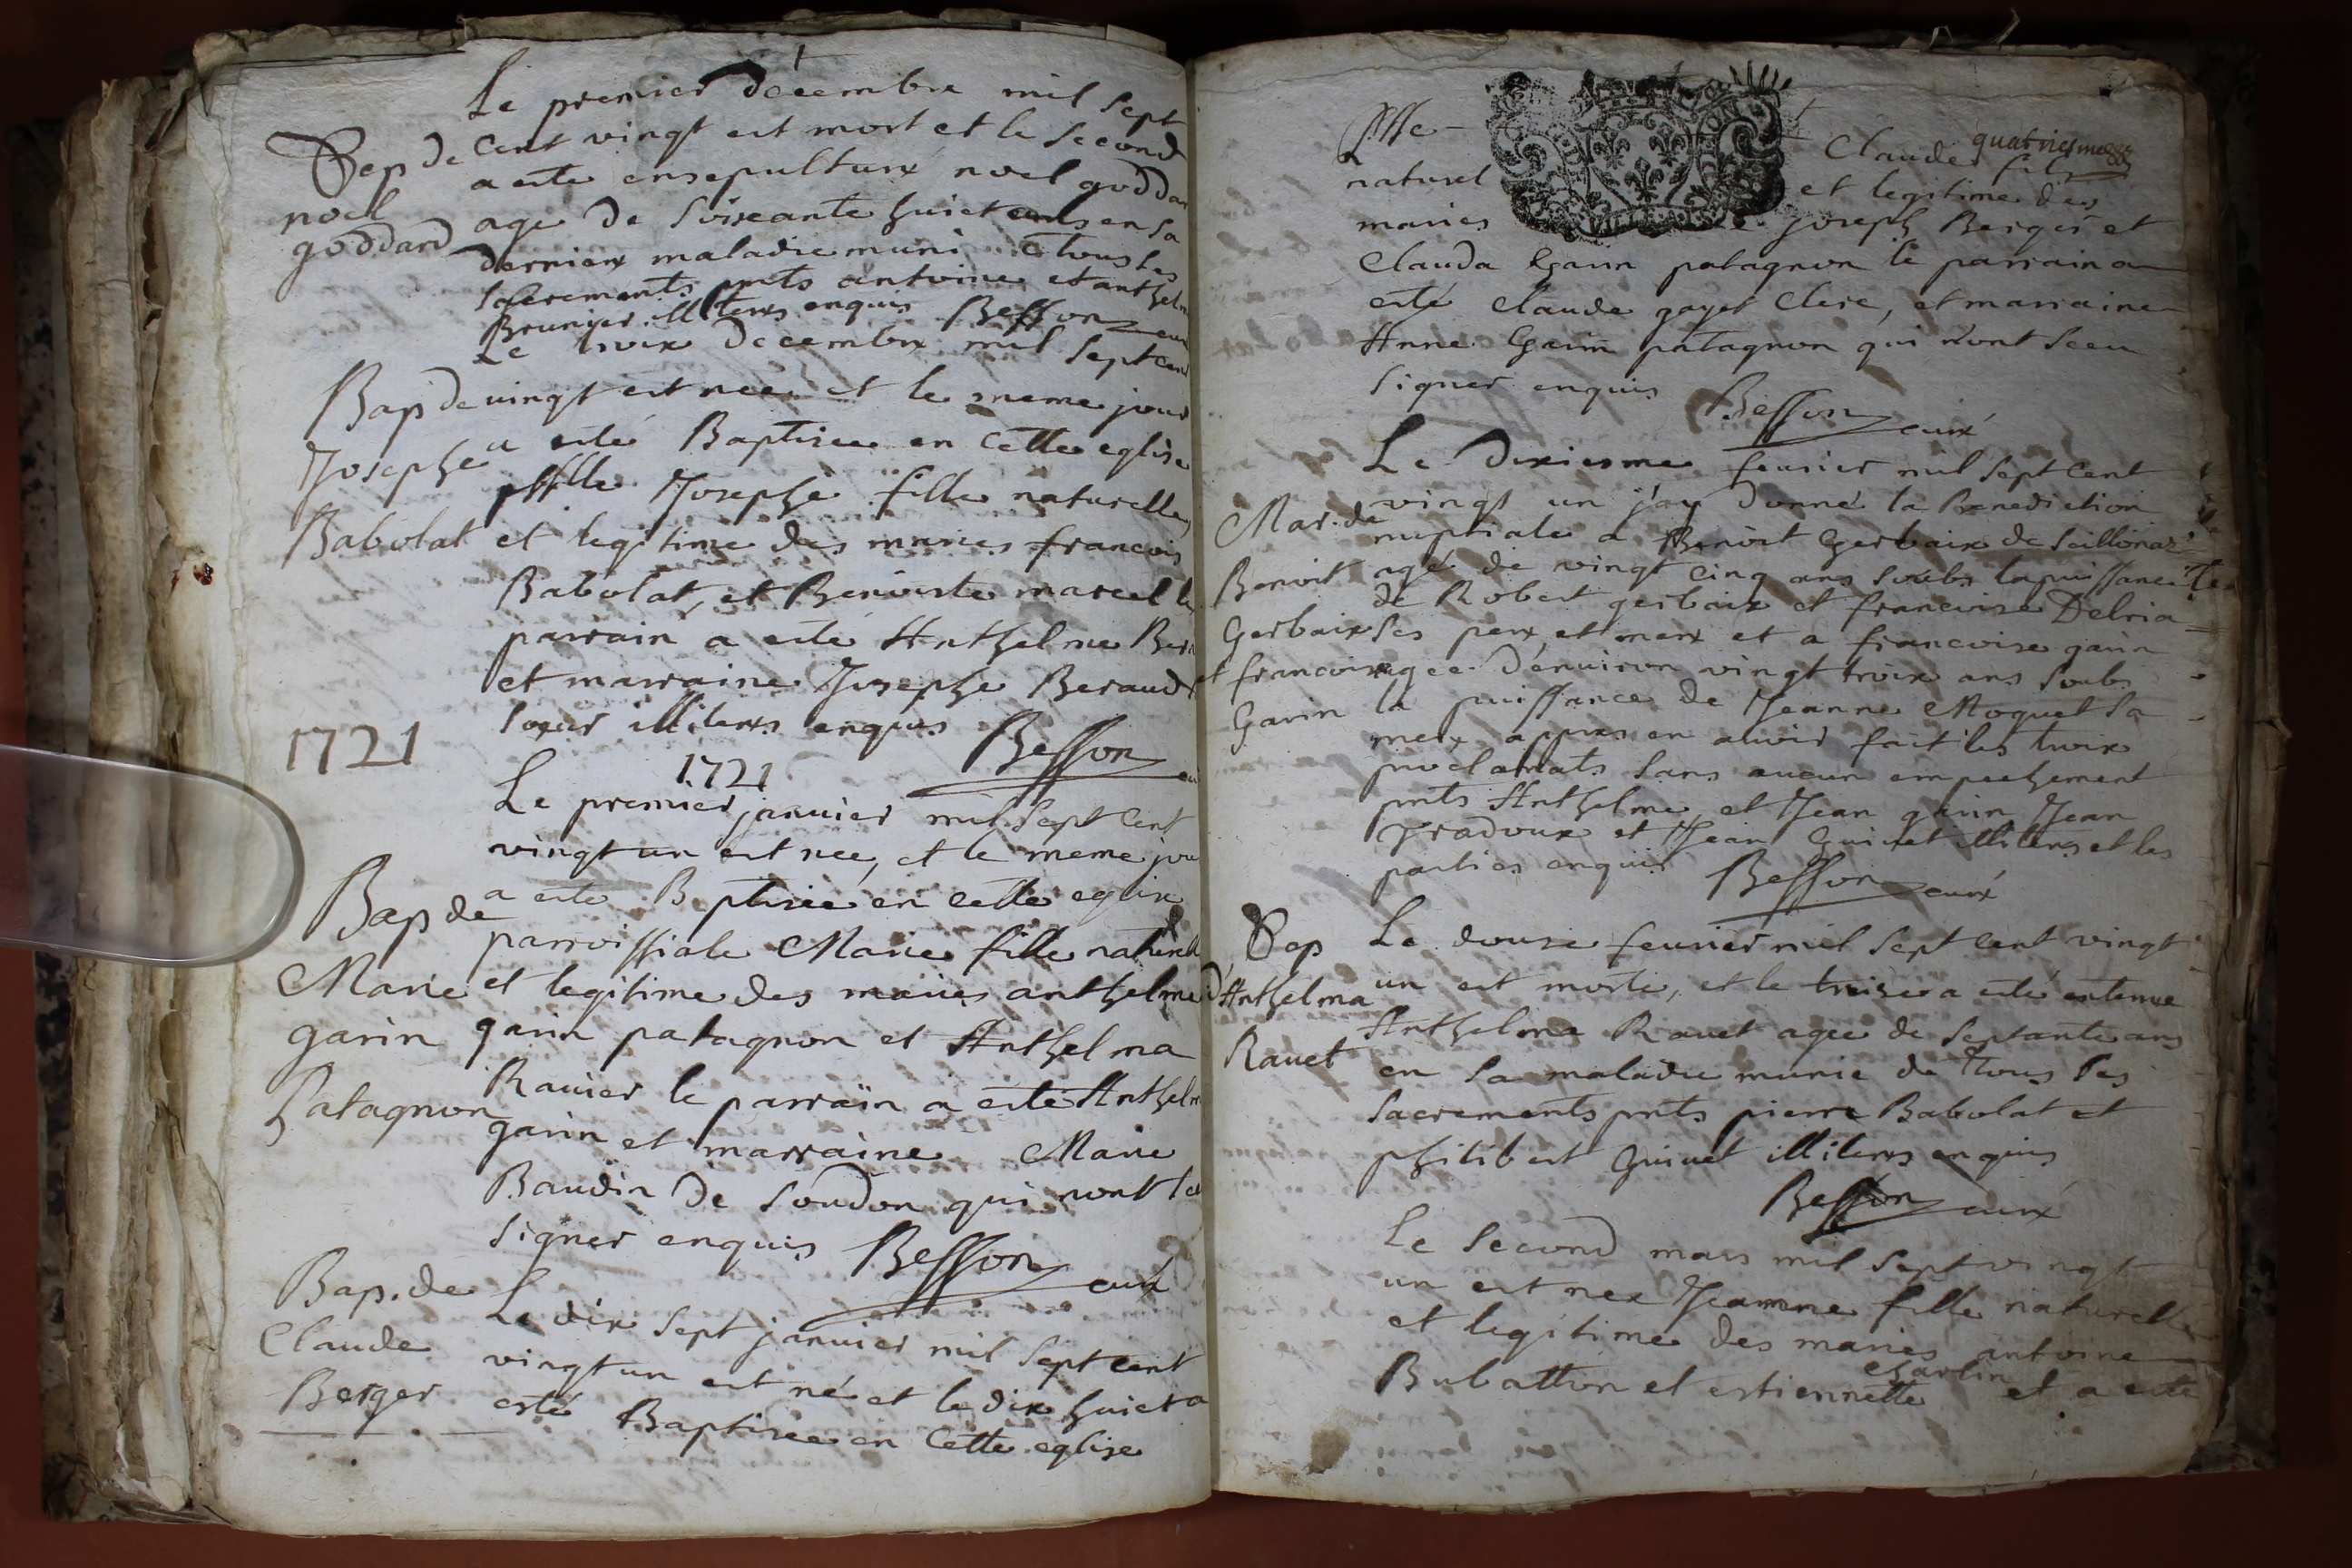 Le premier décembre mil sept
Sep de cent vingt est mort et le second
a esté ensepulture noel goddar
noel
goddard
age de soixante huict ans en sa
derniere maladie muni de tous les
sacrements pnts antoine et anthelm
Brunier illiteres enquis Besson curé
Le trois decembre mil sept cent
Bap de vingt est née et le meme jour
Josephe a esté Baptisee en cette eglise
pssle Josephe fille naturelle
Babolat et legitime des maries francois
Babolat, et Benoiste marcel le
parrain a esté Anthelme Ber
et marraine Josephe Beraud
soeur illiteres enquis Besson cu
1721
1721
Le premier janvier mil sept cent
vingt un est née, et le meme jou
Bap de a esté Baptisée en cette eglise
parroissiale Marie fille naturell
Marie et legitime des maries anthelme
garin garin patagnon et Anthelma
Patagnon Ravier le parrain a esté Anthelm
garin et marraine Marie
Baudin de Soudon qui nont sc
signer enquis Besson curé
Bap. de
Claude
Berger
Le dix sept janvier mil sept cent
vingt un est né et le dix huict a
esté Baptisee en cette eglise
Psse Claude quatriesme fils
naturel et legitime des
maries Joseph Berger et
Clauda Garin patagnon le parrain a
esté Claude gayet Clerc, et marraine
Anne Garin patagnon qui n'ont sceu
signer enquis Besson curé
Le dixiesme feurier mil sept cent
Mar. de vingt un j'ay donné la Benediction
nuptiale a Benoit Gerbaix de Seillonaz
Benoit agé de vingt cinq ans soubs la puissance
de Robert gerbaix et francoise Delria
Gerbaix ses pere et mere et a francoise garin
et francoise agée d'enuiron vingt trois ans soubs
Garin la puissance de Jeanne Moquet sa
mere appres en auoir fait les trois
proclamats sans aucun empechement
pnts Anthelme et Jean garin Jean
Pradoux et Jean Guinet illiteres et les
parties enquis Besson curé
Sep Le douse feurier mil sept cent vingt
d'Anthelma un est morte, et le treise a esté enterree
Ravet Anthelma Ravet agee de septante ans
en sa maladie munie de tous les
sacrements pnts pierre Babolat et
philibert Guinet illiteres enquis
Besson curé
Le second mars mil sept vingt
un est nee Jeanne fille naturelle
et legitime des maries antoine
Charlin
Bubatton et estiennette et a esté